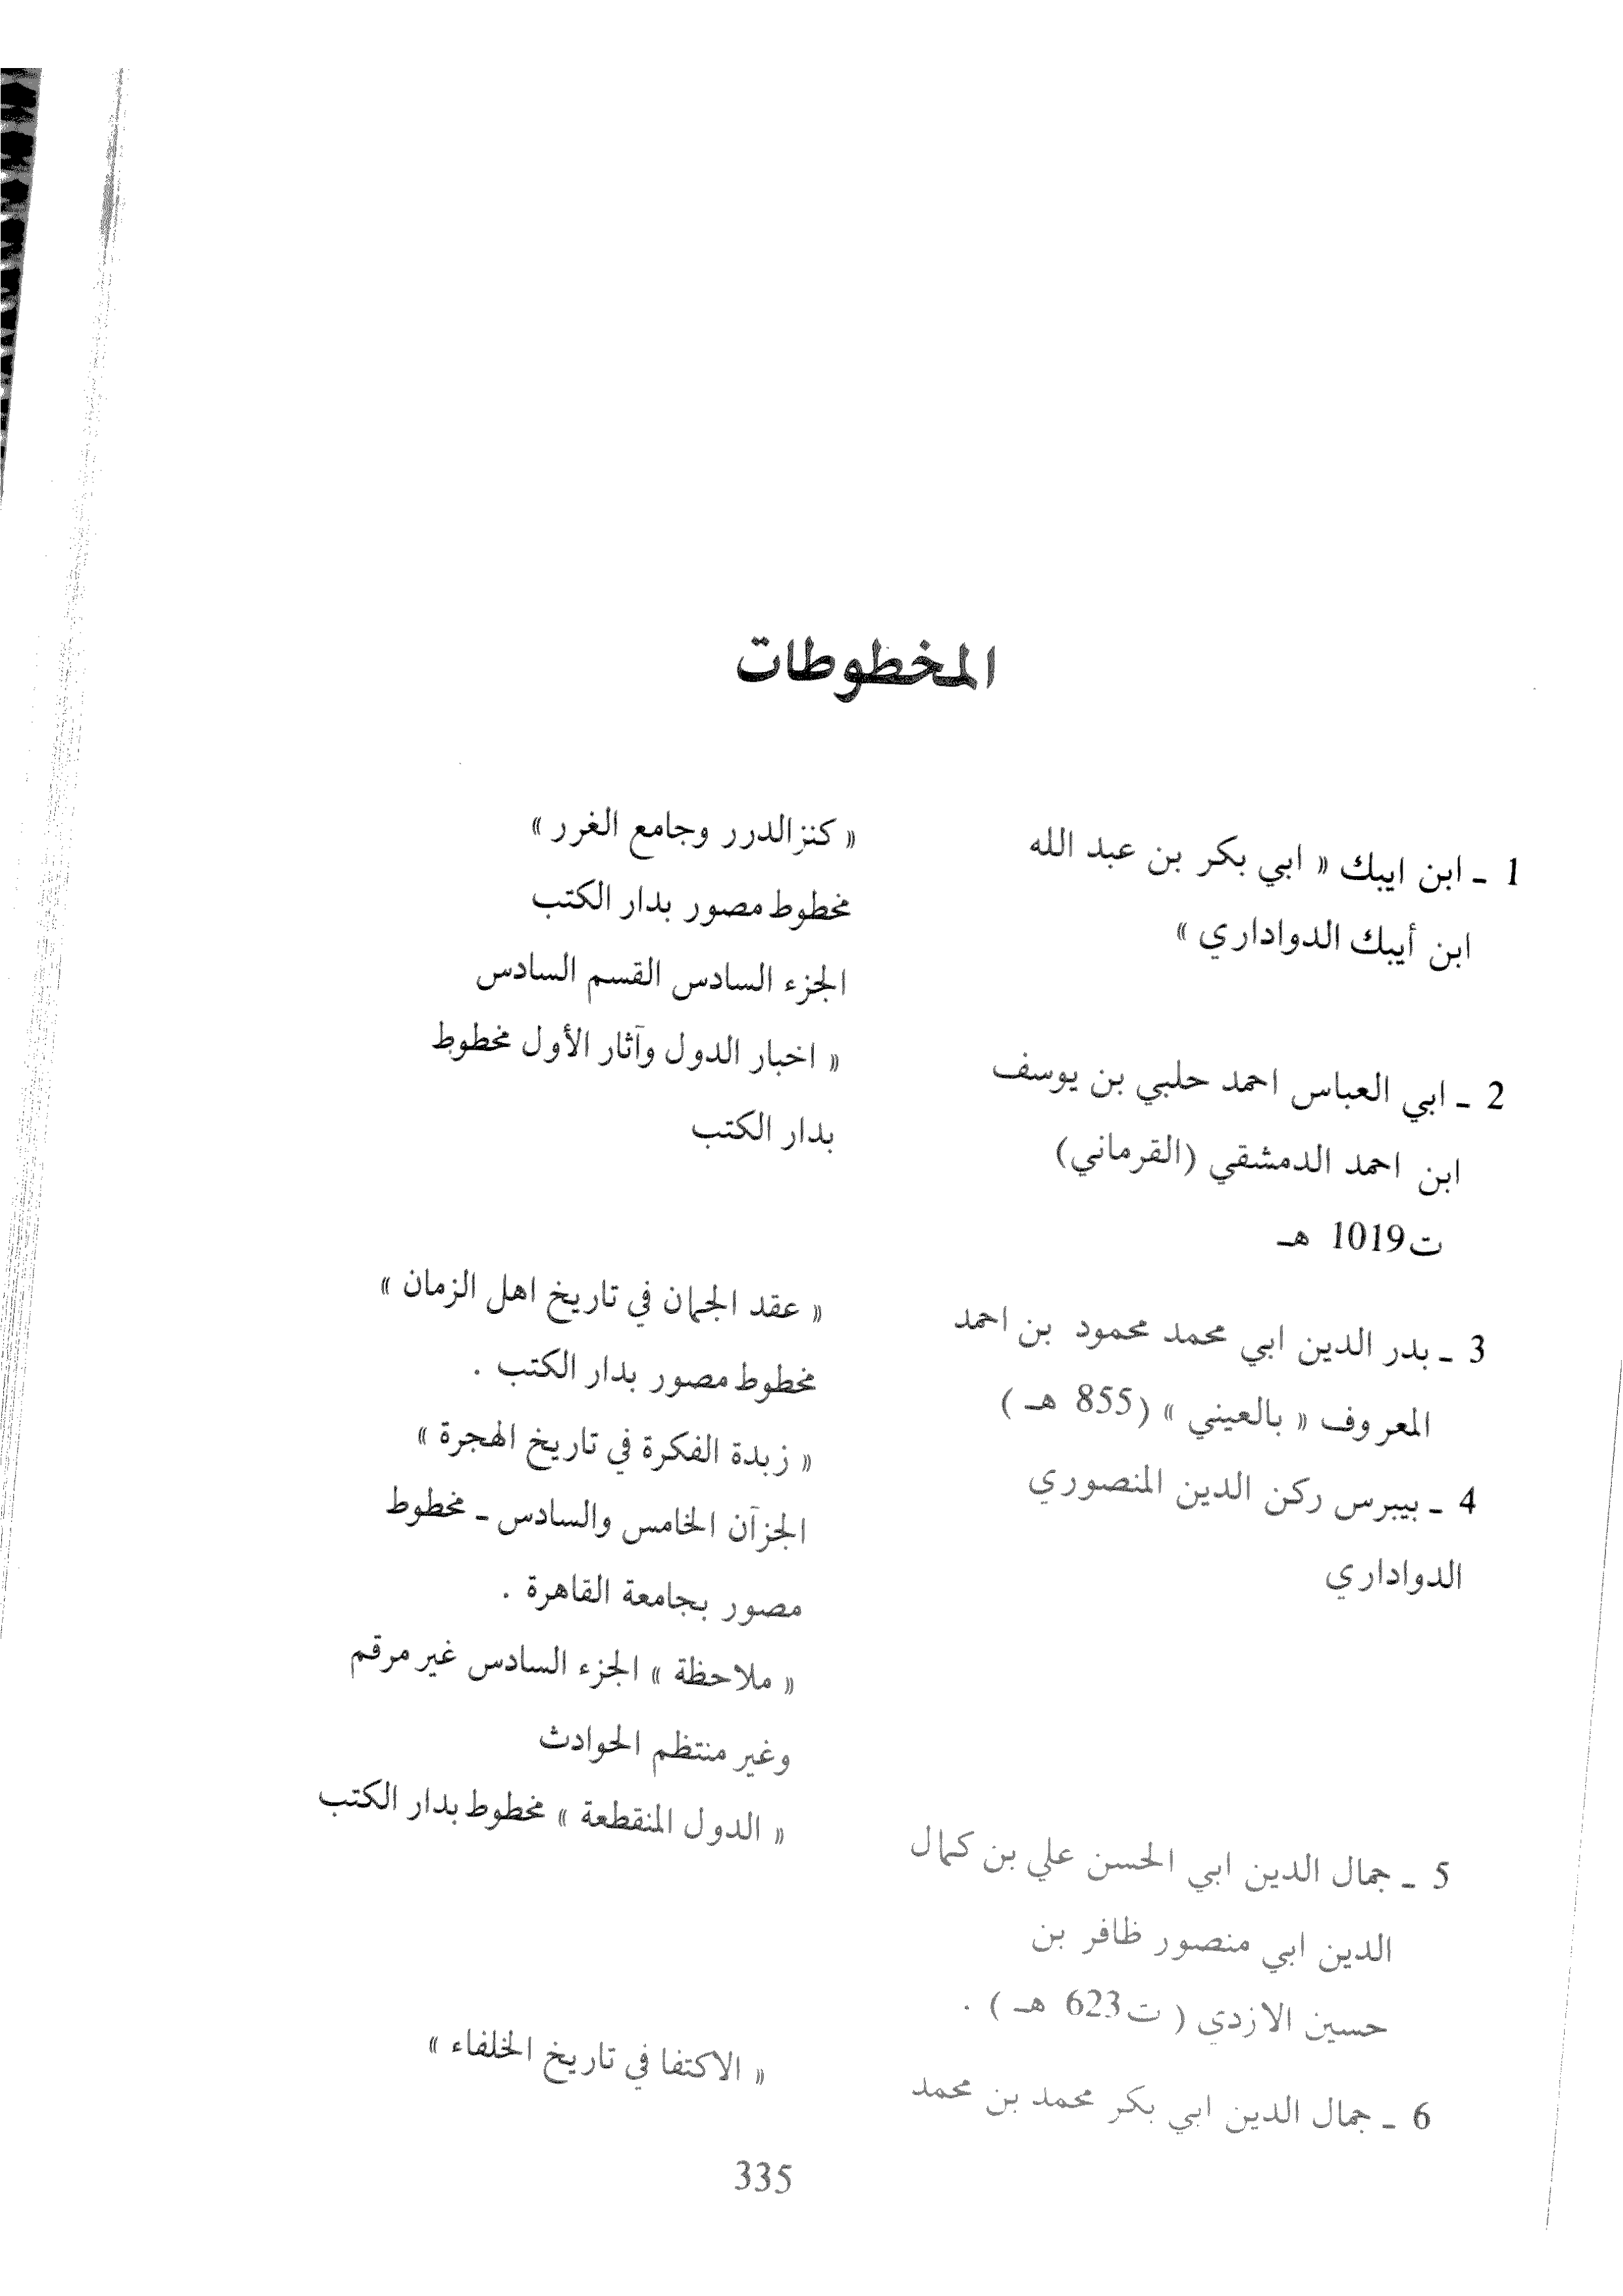 المخطوطات
1 ـ ابن ايبك « ابي بكر بن عبد الله
ابن أيبك الدواداري »
« كنز الدرر وجامع الغرر »
مخطوط مصور بدار الكتب
الجزء السادس القسم السادس
2 ـ ابي العباس احمد حلبي بن يوسف
ابن احمد الدمشقي (القرماني)
ت1019 هـ
« اخبار الدول وآثار الأول مخطوط
بدار الكتب
3 ـ بدر الدين ابي محمد محمود بن احمد
المعروف « بالعيني » (855 هـ )
« عقد الجمان في تاريخ اهل الزمان »
مخطوط مصور بدار الكتب .
4 ـ بيبرس ركن الدين المنصوري
الدواداري
« زبدة الفكرة في تاريخ الهجرة »
الجزآن الخامس والسادس ـ مخطوط
مصور بجامعة القاهرة .
« ملاحظة » الجزء السادس غير مرقم
وغير منتظم الحوادث
5 ـ جمال الدين ابي الحسن علي بن كمال
الدين ابي منصور ظافر بن
حسين الازدي ( ت623 هـ ) .
« الدول المنقطعة » مخطوط بدار الكتب
6 ـ جمال الدين ابي بكر محمد بن محمد
« الاكتفا في تاريخ الخلفاء »
335